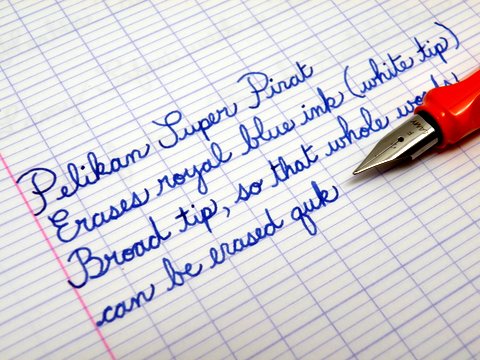 Pelikan Super Pirat
Erases royal blue ink (white tip)
Broad tip, so that whole words
can be erased quk